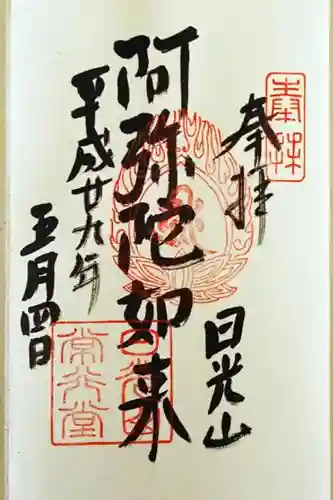 奉拝
奉拝
日光山
阿弥陀如来
日光山
常行堂
平成廿九年
五月四日